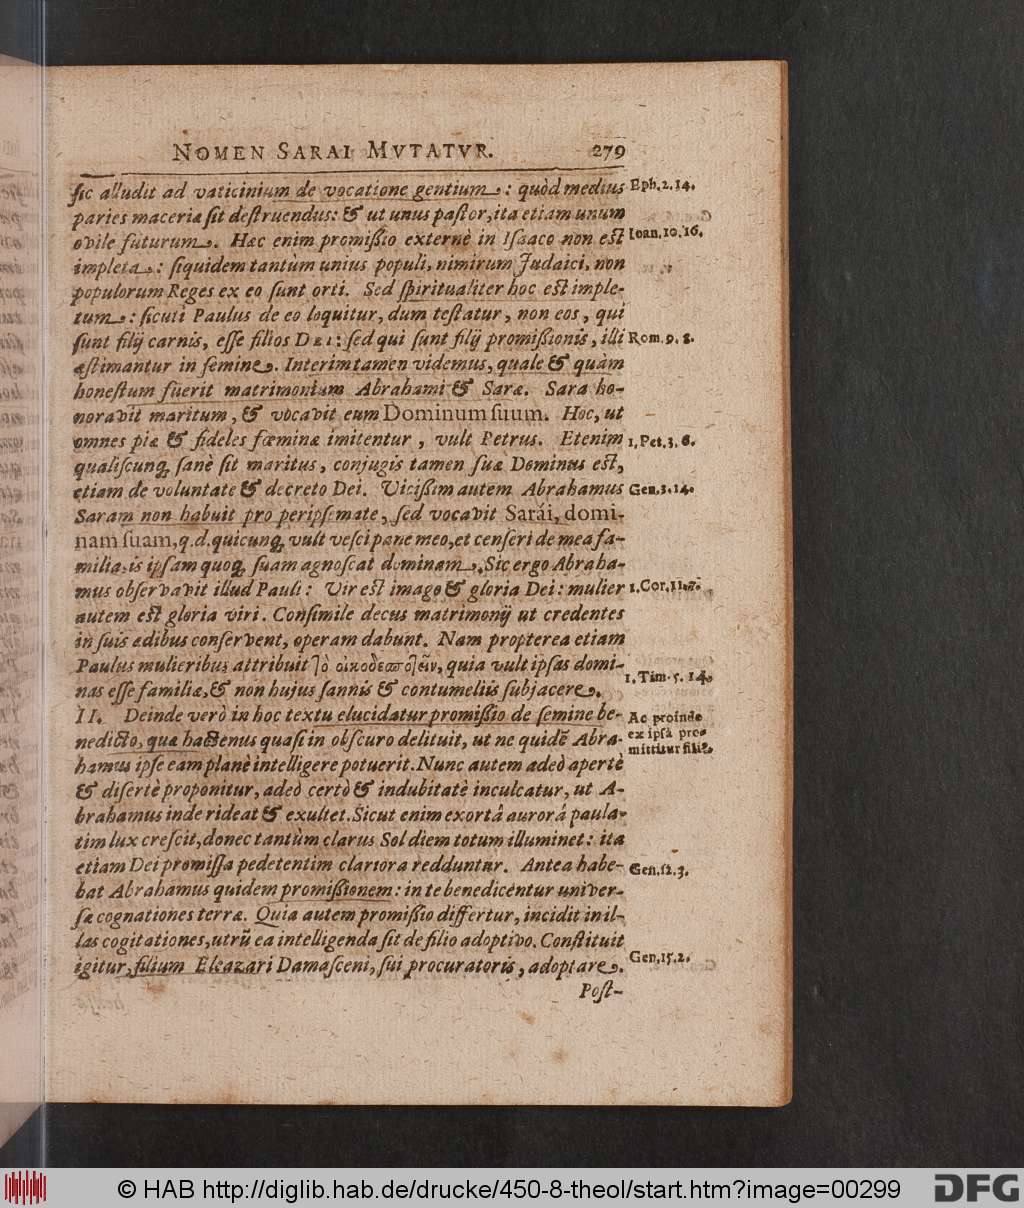 NOMEN SARAI MVTATVR. 279
sic alludit ad vaticinium de vocatione gentium: quòd medius Eph. 2. 14.
paries maceria sit destruendus: & ut unus pastor, ita etiam unum
ovile futurum. Hæc enim promißio externè in Isaaco non est Ioan. 10. 16.
impleta: siquidem tantùm unius populi, nimirum Judaici, non
populorum Reges ex eo sunt orti. Sed spiritualiter hoc est imple-
tum: sicuti Paulus de eo loquitur, dum testatur, non eos, qui
sunt filij carnis, esse filios DEI: sed qui sunt filij promißionis, illi Rom. 9. 8.
æstimantur in semine. Interim tamen videmus, quale & quàm
honestum fuerit matrimonium Abrahami & Saræ. Sara ho-
noravit maritum, & vocavit eum Dominum suum. Hoc, ut
omnes piæ & fideles fœminæ imitentur, vult Petrus. Etenim 1. Pet. 3. 6.
qualiscunq; sanè sit maritus, conjugis tamen suæ Dominus est,
etiam de voluntate & decreto Dei. Vicißim autem Abrahamus Gen. 3. 14.
Saram non habuit pro peripsemate, sed vocavit Sarái, domi-
nam suam, q.d. quicunq; vult vesci pane meo, et censeri de mea fa-
milia, is ipsam quoq; suam agnoscat dominam. Sic ergo Abraha-
mus observavit illud Pauli: Vir est imago & gloria Dei: mulier 1. Cor. 11. 7.
autem est gloria viri. Consimile decus matrimonij ut credentes
in suis ædibus conservent, operam dabunt. Nam propterea etiam
Paulus mulieribus attribuit τὸ οἰκοδεσποτεῖν, quia vult ipsas domi-
nas esse familiæ, & non hujus sannis & contumeliis subjacere. 1. Tim. 5. 14.
II. Deinde verò in hoc textu elucidatur promißio de semine be- Ac proinde
nedicto, quæ hactenus quasi in obscuro delituit, ut ne quidẽ Abra- ex ipsâ pro-
hamus ipse eam planè intelligere potuerit. Nunc autem adeò apertè mittitur filiꝰ.
& disertè proponitur, adeò certò & indubitatè inculcatur, ut A-
brahamus inde rideat & exultet. Sicut enim exortâ aurorâ paula-
tim lux crescit, donec tantùm clarus Sol diem totum illuminet: ita
etiam Dei promissa pedetentim clariora redduntur. Antea habe- Gen. 12. 3.
bat Abrahamus quidem promißionem: in te benedicentur univer-
sæ cognationes terræ. Quia autem promißio differtur, incidit in il-
las cogitationes, utrũ ea intelligenda sit de filio adoptivo. Constituit
igitur, filium Eleazari Damasceni, sui procuratoris, adoptare. Gen. 15. 2.
Post-
© HAB http://diglib.hab.de/drucke/450-8-theol/start.htm?image=00299
DFG